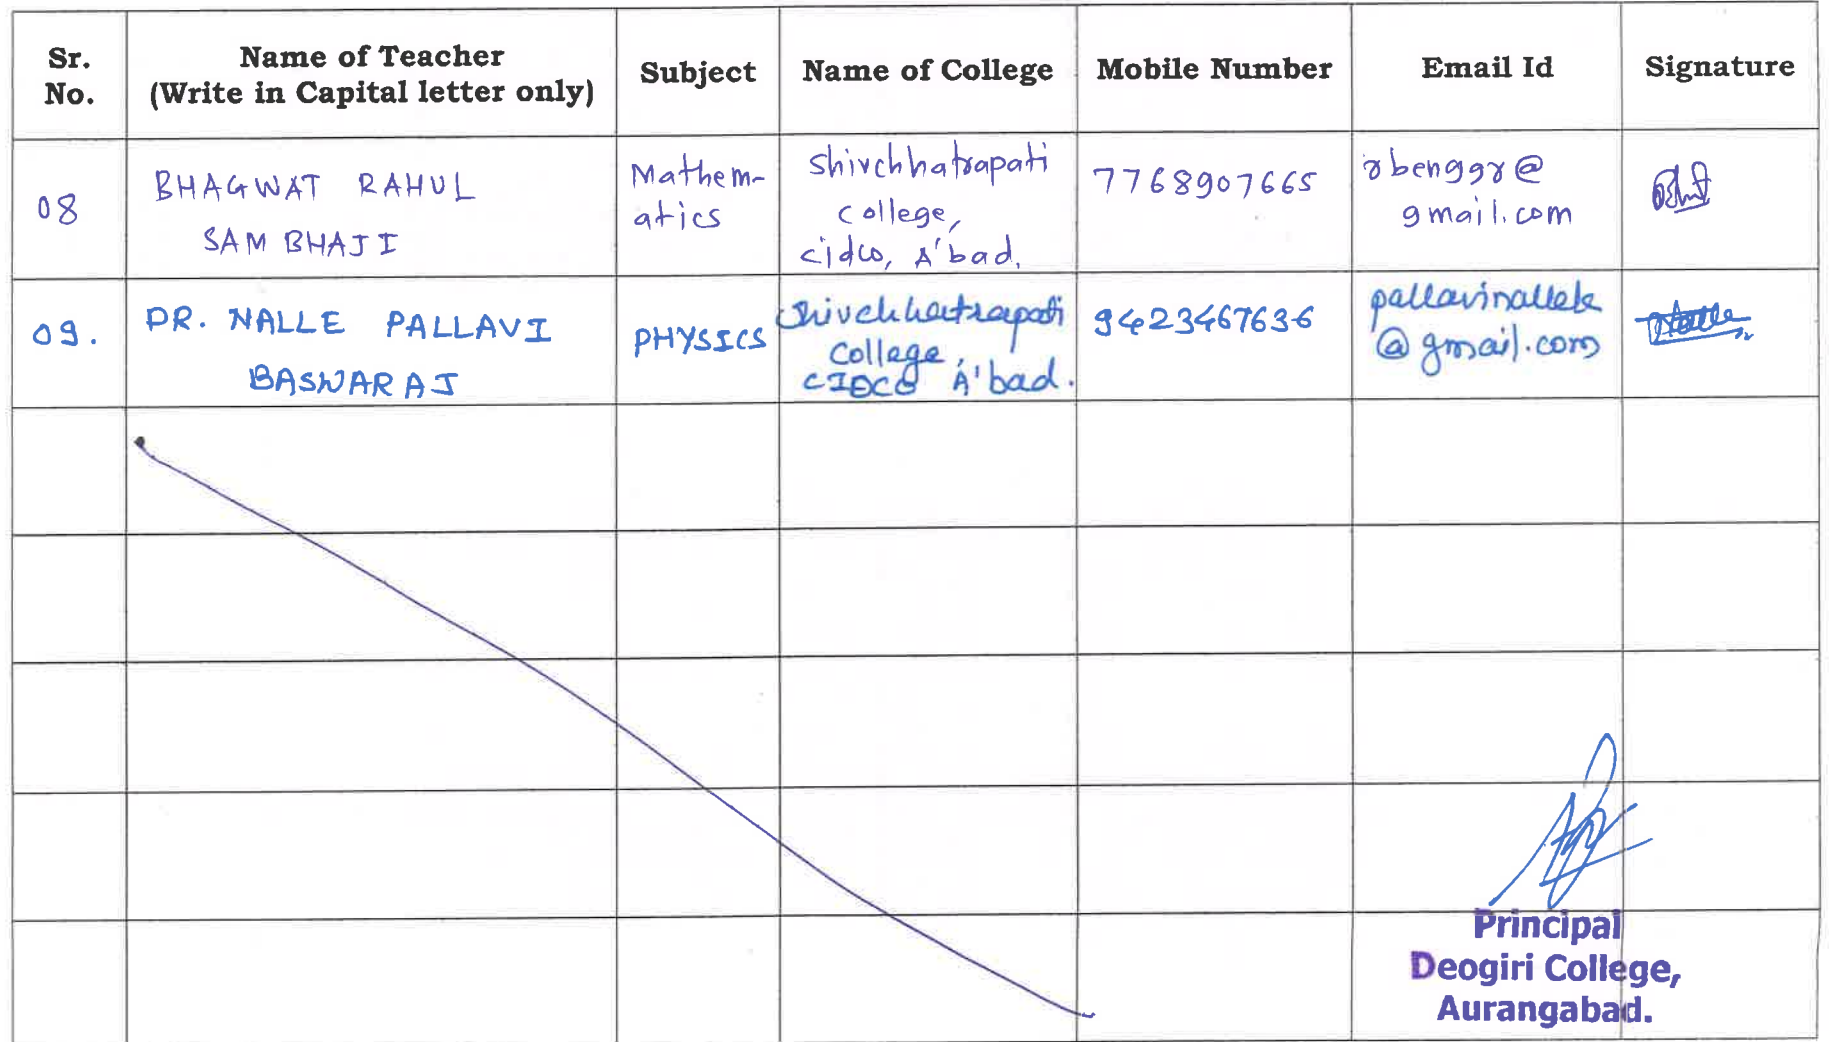 Sr. No.
Name of Teacher
(Write in Capital letter only)
Subject
Name of College
Mobile Number
Email Id
Signature
08
BHAGWAT RAHUL
SAMBHAJI
Mathem-
atics
Shivchhatrapati
college,
cidco, A'bad.
7768907665
@
gmail.com
09.
DR. NALLE PALLAVI
BASWARAJ
PHYSICS
Shivchhatrapati
College,
CIDCO A'bad.
9423467636
pallavinallek
@gmail.com
Principal
Deogiri College,
Aurangabad.